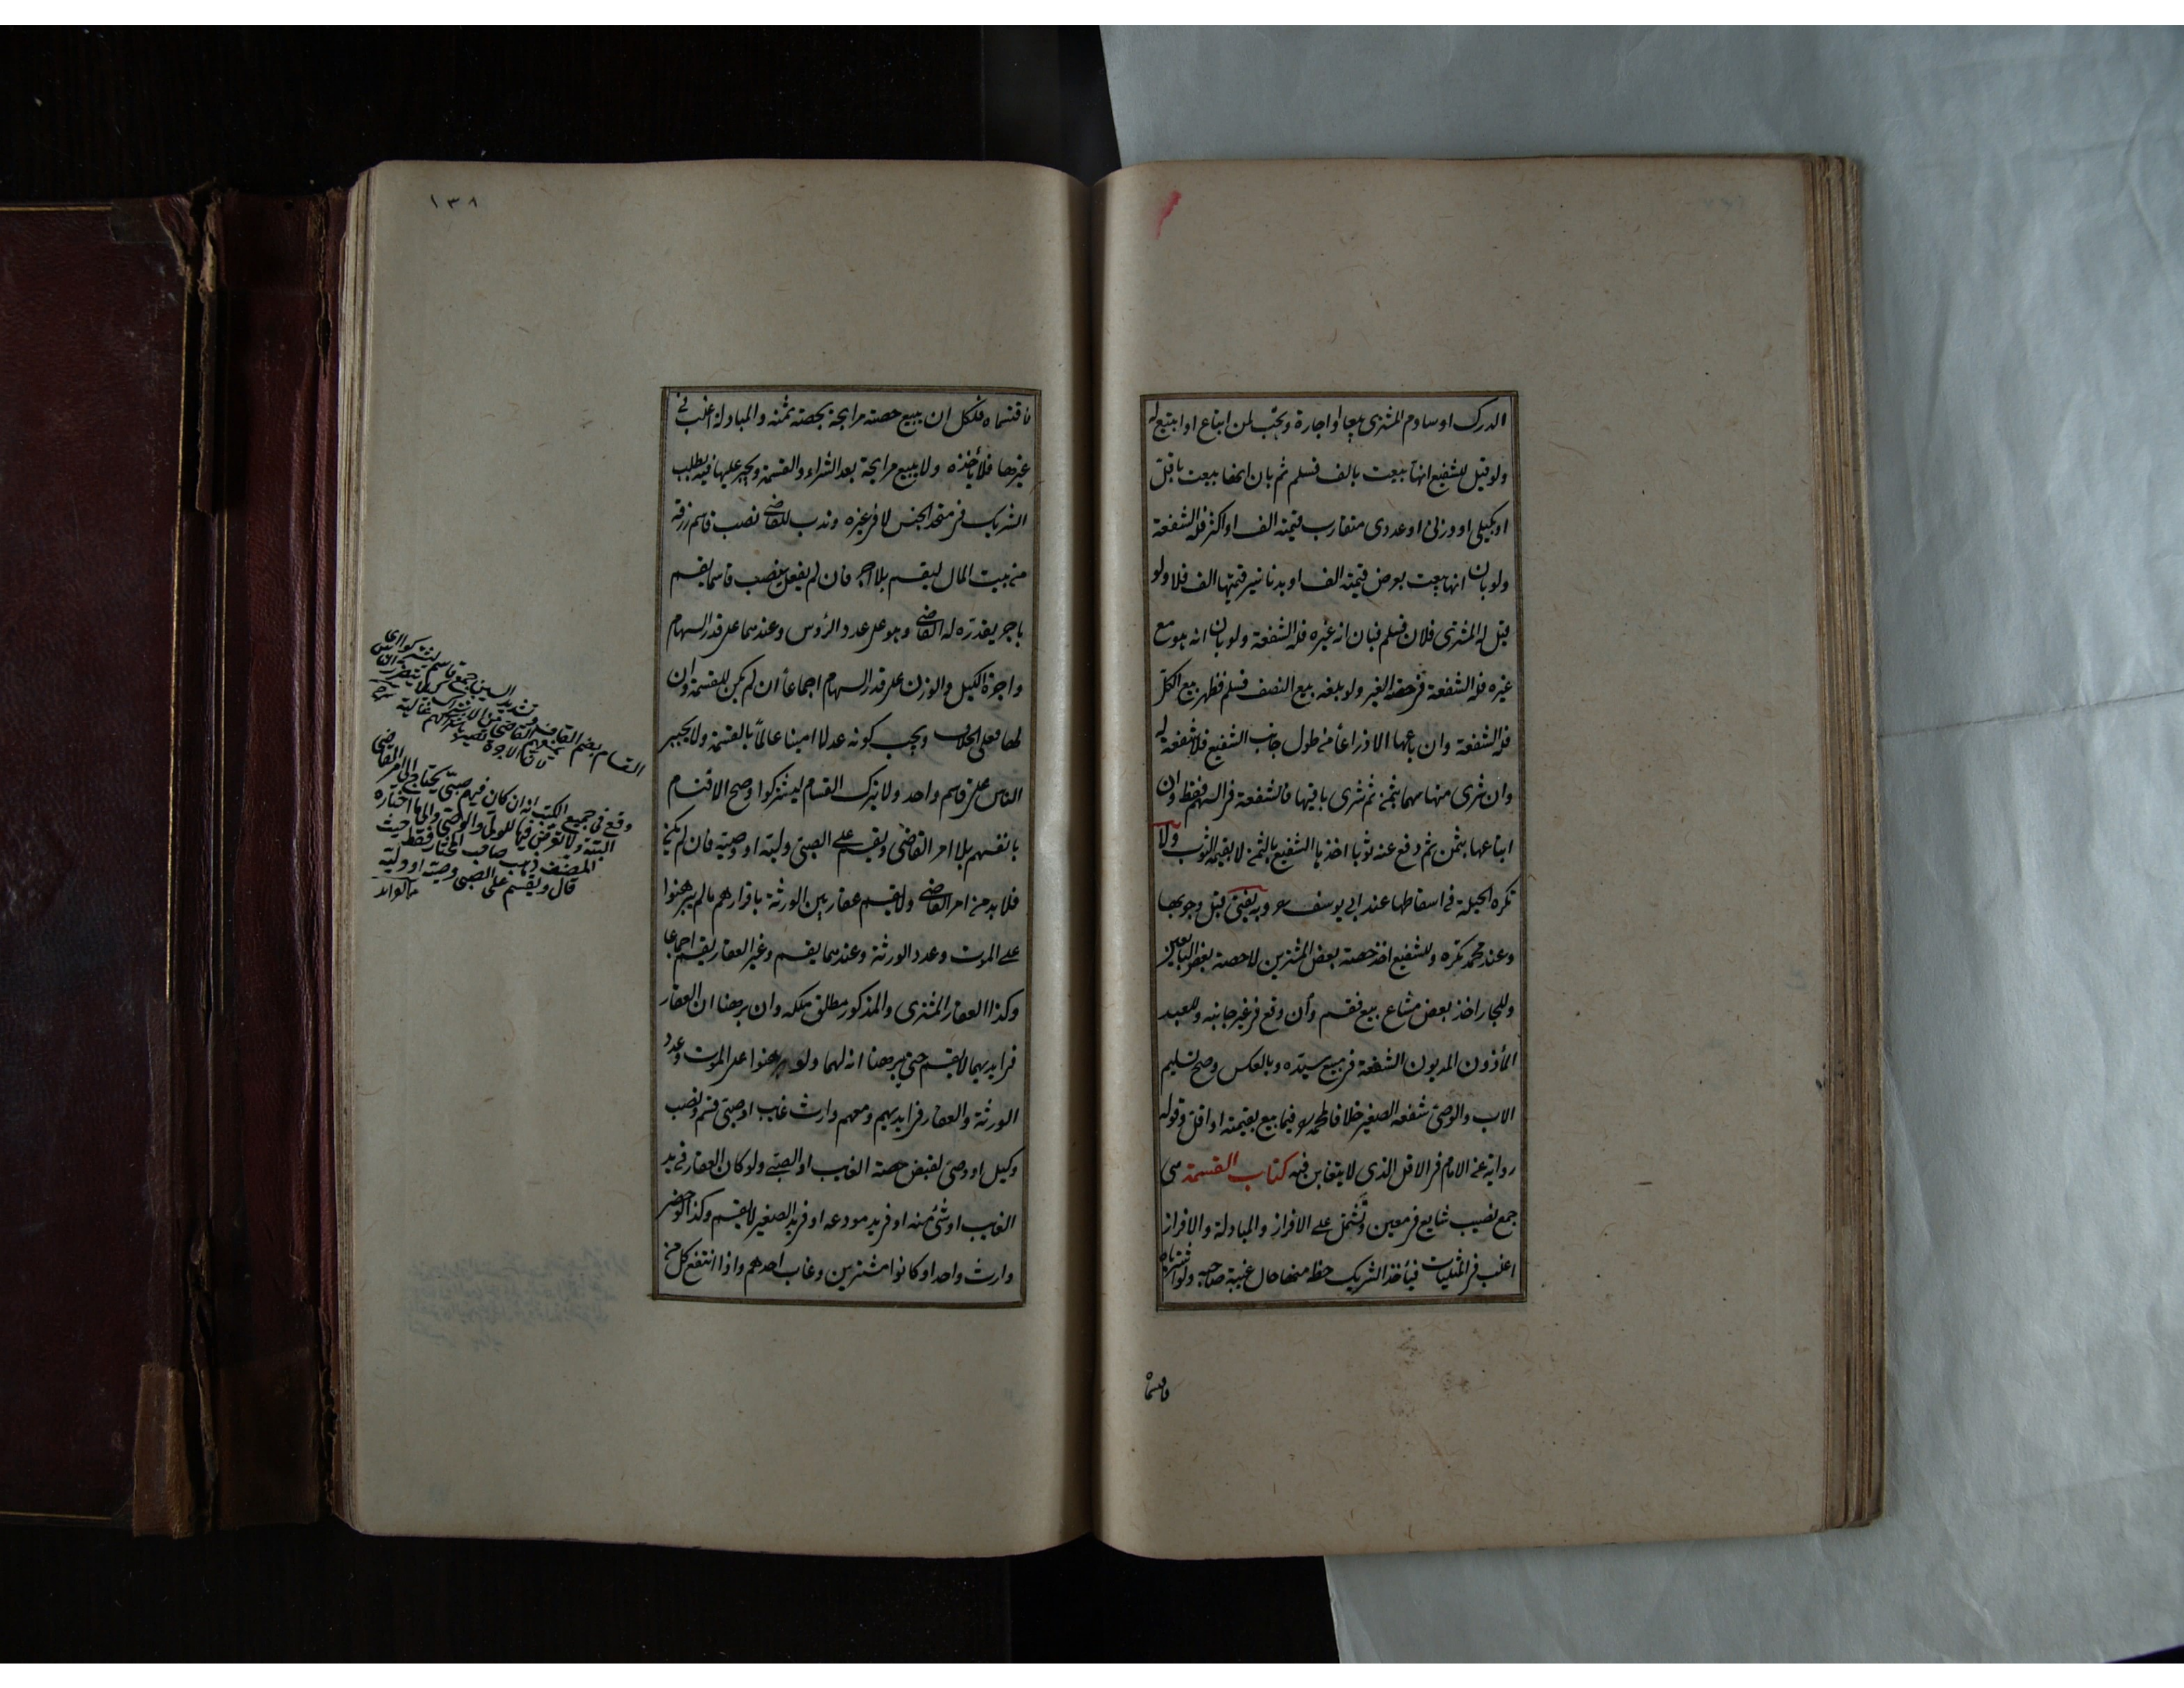 الدرك او ساوم المشتري بيعا او اجارة وتجب لمن ابتاع او ابتيع له
ولو قيل للشفيع انها بيعت بالف فسلم ثم بان انها بيعت باقل
او بكيلي او وزني او عددي متقارب قيمته الف او اكثر فله الشفعة
ولو بان انها بيعت بعرض قيمته الف او بدنانير قيمتها الف فلا ولو
قيل له المشتري فلان فسلم فبان انه غيره فله الشفعة ولو بان انه هو مع
غيره فله الشفعة في حصة الغير ولو بلغه بيع النصف فسلم فظهر بيع الكل
فله الشفعة وان باعها الا ذراعا من طول جانب الشفيع فلا شفعة له
وان شرى منها سهما بثمن ثم شرى باقيها فالشفعة في السهم فقط وان
ابتاعها بثمن ثم دفع عنه ثوبا اخذها الشفيع بالثمن لا بقيمة الثوب ولا
تكره الحيلة في اسقاطها عند ابي يوسف رح وبه يفتى قبل وجوبها
وعند محمد تكره وللشفيع اخذ حصة بعض المشترين لا حصة بعض البايعين
وللجار اخذ بعض مشاع بيع فقسم وان وقع في غير جانبه وللعبد
المأذون المديون الشفعة في مبيع سيده وبالعكس وصح تسليم
الاب والوصي شفعة الصغير خلافا لمحمد رح فيما بيع بقيمته او اقل وقوله
رواية عن الامام في الاقل الذي لا يتغابن فيه كتاب القسمة هي
جمع نصيب شايع في معين وتشتمل على الافراز والمبادلة والافراز
اغلب في المثليات فيأخذ الشريك حظه منها حال غيبة صاحبه ولو اشترياه
فاقتسماه
١٣٨
فاقتسماه فلكل ان يبيع حصته مرابحة بحصة ثمنه والمبادلة اغلب في
غيرها فلا يأخذه ولا يبيع مرابحة بعد الشراء والقسمة ويجبر عليها فيه بطلب
الشريك في متحد الجنس لا في غيره وندب للقاضي نصب قاسم رزقه
من بيت المال ليقسم بلا اجر فان لم يفعل ينصب قاسما يقسم
باجر يقدره له القاضي وهو على عدد الرؤس وعندهما على قدر السهام
واجرة الكيل والوزن على قدر السهام اجماعا ان لم يكن للقسمة وان
لها فعلى الخلاف ويجب كونه عدلا امينا عالما بالقسمة ولا يجبر
الناس على قاسم واحد ولا يترك القسام ليشتركوا وصح الاقتسام
بانفسهم بلا امر القاضي ويقسم على الصبي وليه او وصيه فان لم يكن
فلا بد من امر القاضي ولا يقسم عقار بين الورثة باقرارهم ما لم يبرهنوا
على الموت وعدد الورثة وعندهما يقسم وغير العقار يقسم اجماعا
وكذا العقار المشترى والمذكور مطلق ملكه وان برهنا ان العقار
في ايديهما لا يقسم حتى يبرهنا انه لهما ولو برهنوا على الموت وعدد
الورثة والعقار في ايديهم ومعهم وارث غايب او صبي قسم ونصب
وكيل او وصي لقبض حصة الغايب او الصبي ولو كان العقار في يد
الغايب او شئ منه او في يد مودعه او في يد الصغير لا يقسم وكذا لو حضر
وارث واحد او كانوا مشترين وغاب احدهم واذا انتفع كل من
القسام بضم القاف وتشديد السين جمع قاسم
وقع في جميع الكتب انه ان كان فيهم صبي يحتاج الى امر القاضي
البتة ولا تعرض فيها للولي والوصي والى ما اختاره
المصنف ذهب صاحب المختار فقط حيث
قال ويقسم على الصبي وصيه او وليه